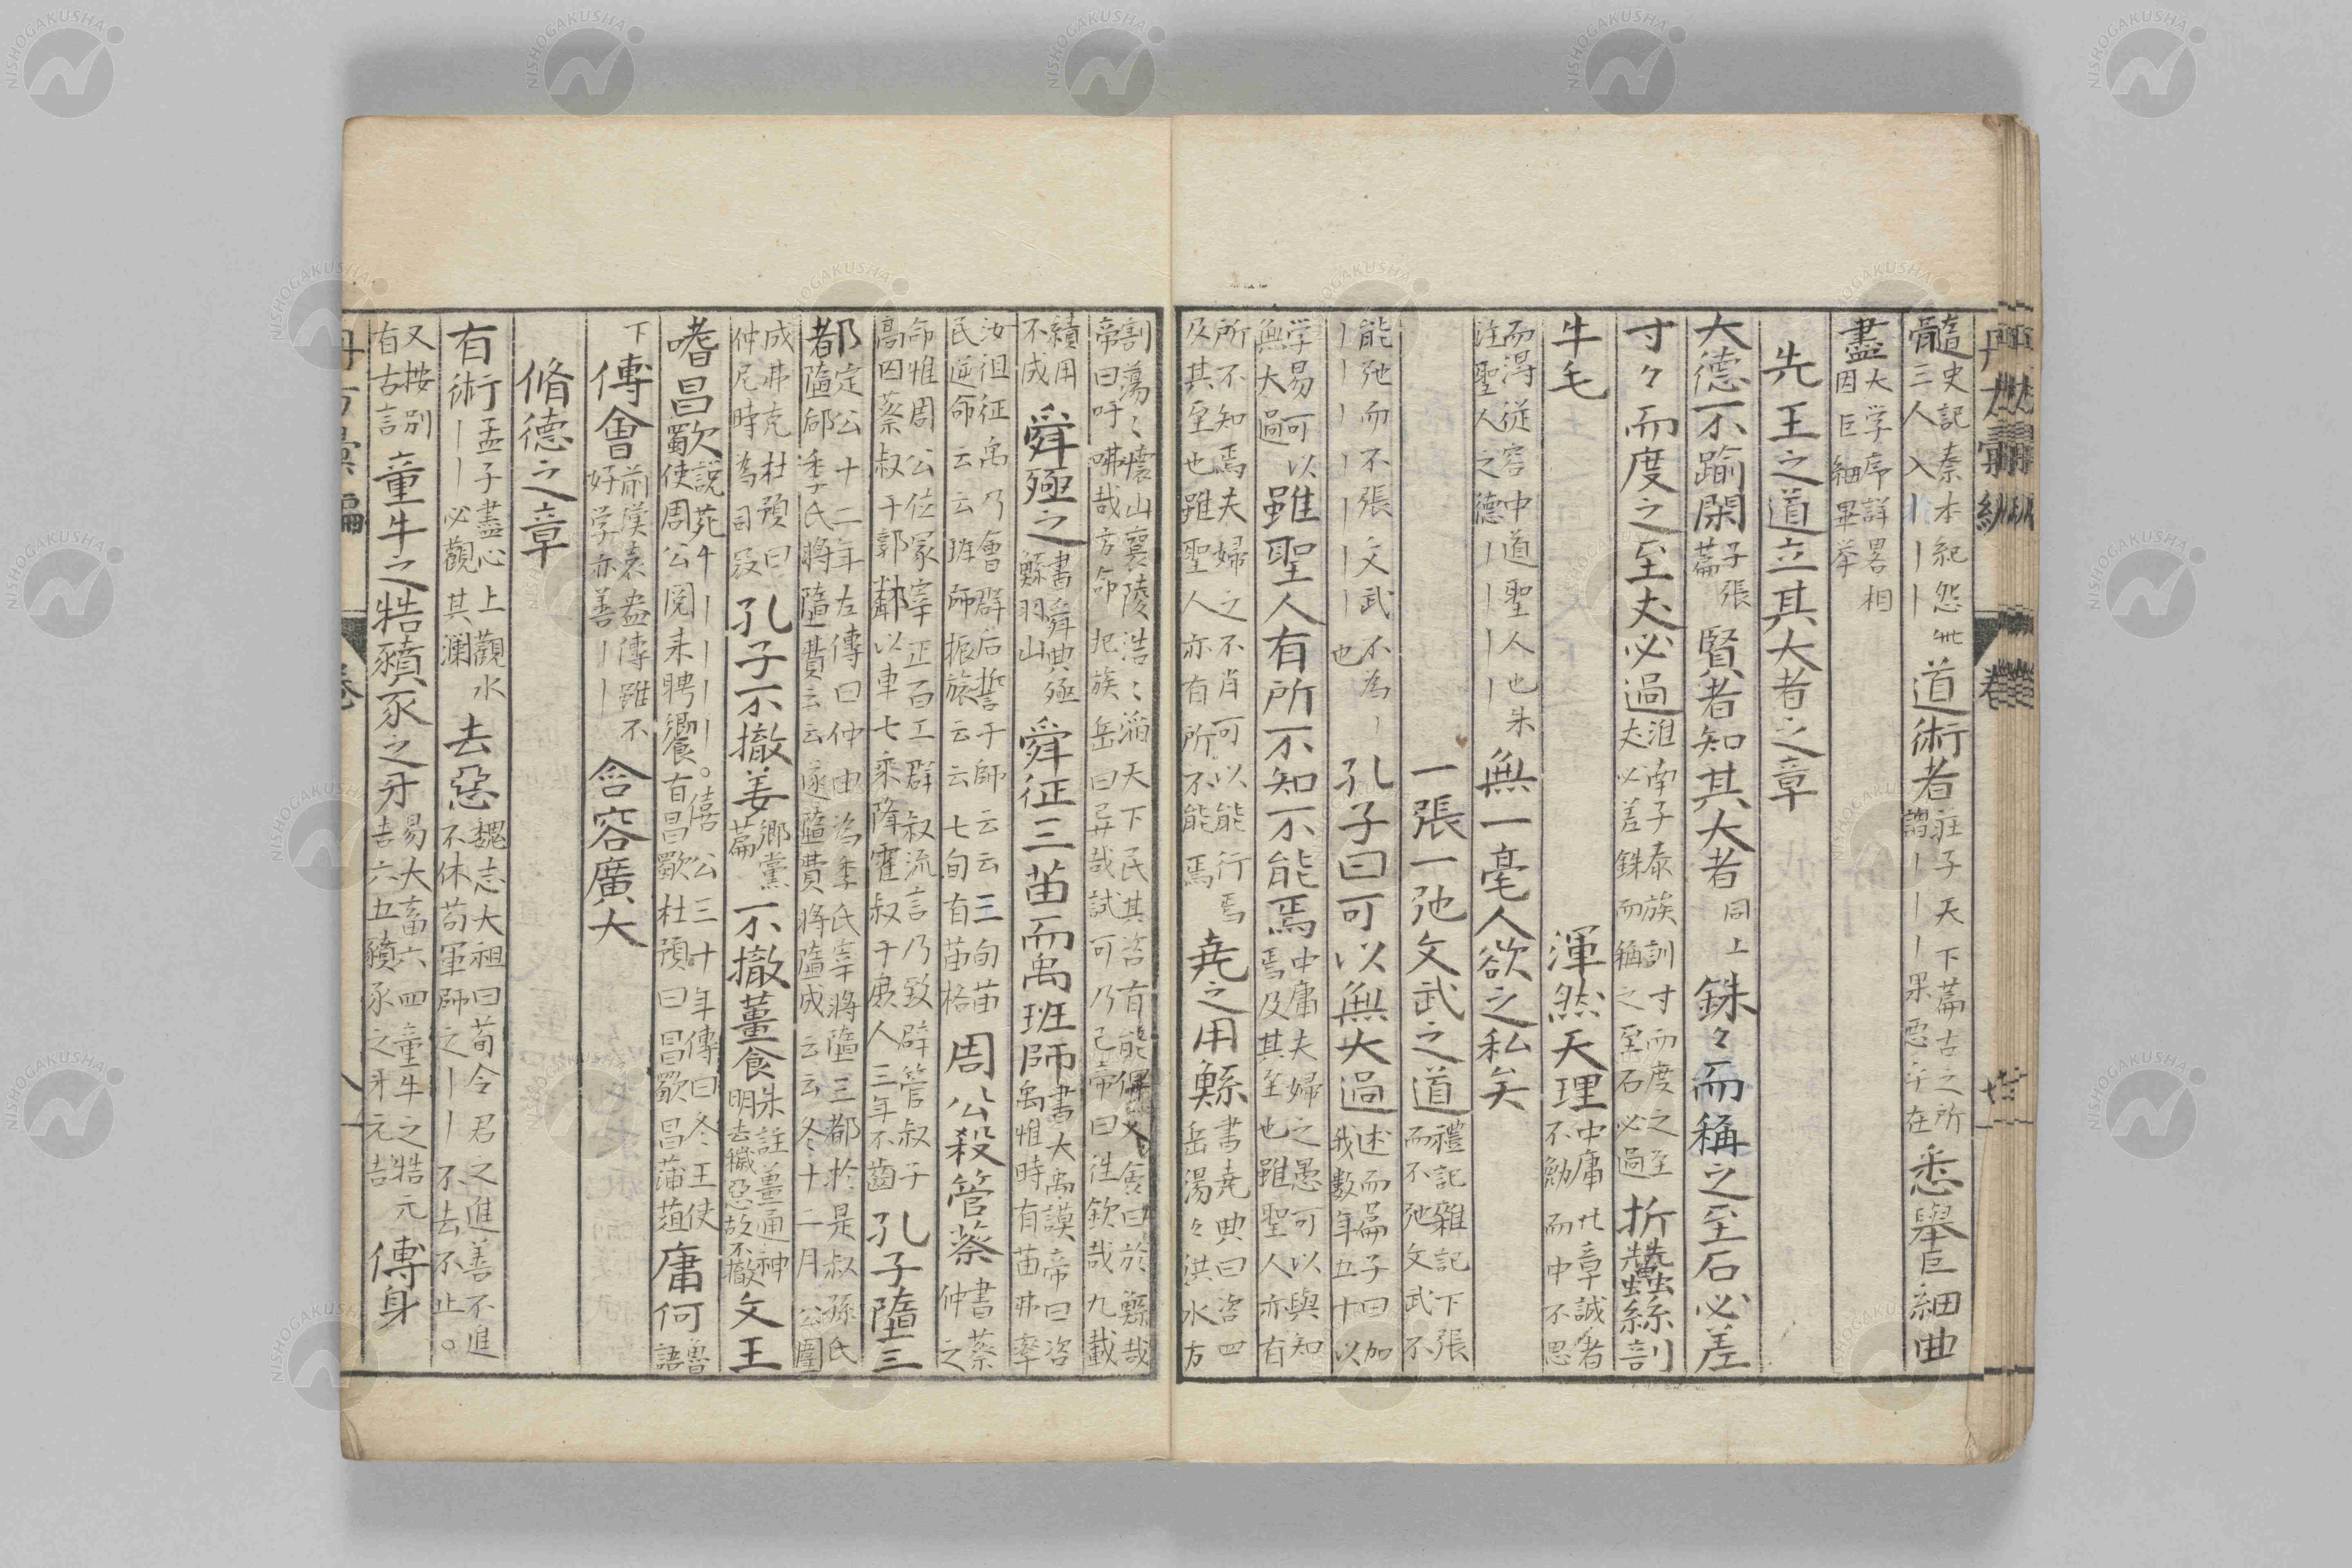 髓史記秦本紀怨此道術者莊子天下篇古之所悉舉巨細曲
三人入｜｜｜謂｜｜｜果惡乎在
盡大学序詳畧相
因巨細畢挙
先王之道立其大者之章
大德不踰閑子張篇賢者知其大者同上銖々而稱之至石必差
寸々而度之至丈必過淮南子泰族訓寸而度之至
丈必差銖而稱之至石必過折蠶絲割
牛毛
渾然天理中庸廿章誠者
不勉而中不思
而得從容中道聖人也朱
註聖人之德｜｜｜｜無一毫人欲之私矣
一張一弛文武之道禮記雜記下張
而不弛文武不
能弛而不張文武不為｜
｜｜｜｜｜｜也孔子曰可以無大過述而篇子曰加
我數年五十以
学易可以
無大過雖聖人有所不知不能焉中庸夫婦之愚可以與知
焉及其至也雖聖人亦有
所不知焉夫婦之不肖可以能行焉
及其至也雖聖人亦有所不能焉堯之用鯀書堯典曰咨四
岳湯々洪水方
割蕩々懷山襄陵浩々滔天下民其咨有能俾乂僉曰於鯀哉
帝曰吁咈哉方命圯族岳曰异哉試可乃已帝曰徃欽哉九載
績用
不成舜殛之書舜典殛
鯀羽山舜征三苗而禹班師書大禹謨帝曰咨
禹惟時有苗弗率
汝徂征禹乃會群后誓于師云云三旬苗
民逆命云云班師振旅云云七旬有苗格周公殺管蔡書蔡
仲之
命惟周公位冢宰正百工群叔流言乃致辟管叔于
商囚蔡叔于郭鄰以車七乘降霍叔于庶人三年不齒孔子墮三
都定公十二年左傳曰仲由為季氏宰將墮三都於是叔孫氏
墮郈季氏將墮費云云遂墮費將墮成云云冬十二月公圍
成弗克杜預曰
仲尼時為司寇孔子不撤姜郷黨
篇不撤薑食朱註薑通神
明去穢惡故不撤文王
嗜昌歜説苑｜｜｜｜｜。僖公三十年傳曰冬王使
使周公閲来聘饗有昌歜杜預曰昌歜昌蒲葅庸何魯
語
下傳會前漢袁盎傳雖不
好学亦善｜｜含容廣大
脩德之章
有術孟子盡心上觀水
｜｜必觀其瀾去惡魏志大祖曰荀令君之進善不進
不休荀軍師之｜｜不去不止。
又按別
有古言童牛之牿豶豕之牙易大畜六四童牛之牿元
吉六五豶豕之牙元吉傳身